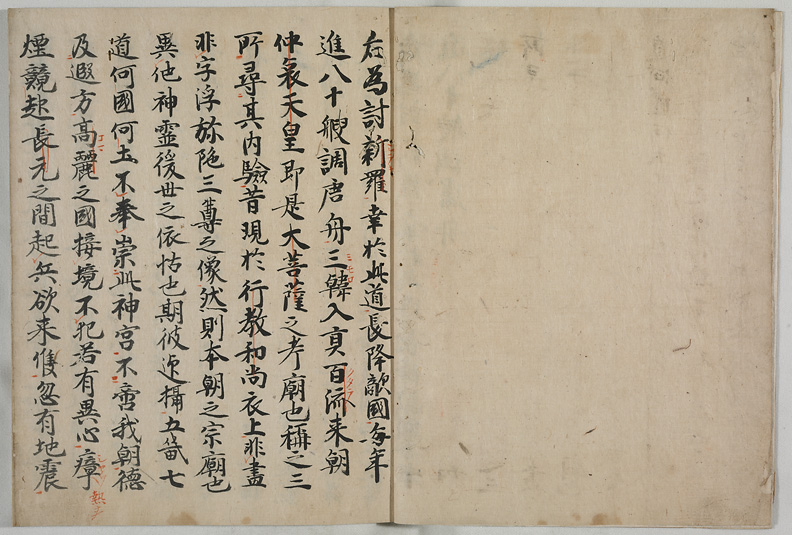 右為討新羅幸於此道長降敵國毎年
進八十艘調唐舟三韓入貢百済来朝
仲哀天皇即是大菩薩之考廟也稱之三
所尋其内驗昔現於行教和尚衣上非盡
非字浮弥陁三尊之像然則本朝之宗廟也
異他神靈後世之依怙也期彼迎攝五畿七
道何國何土不奉崇此神宮不啻我朝德
及遐方高麗之國接境不犯若有異心瘴
煙競起長元之間起兵欲来忽有地震